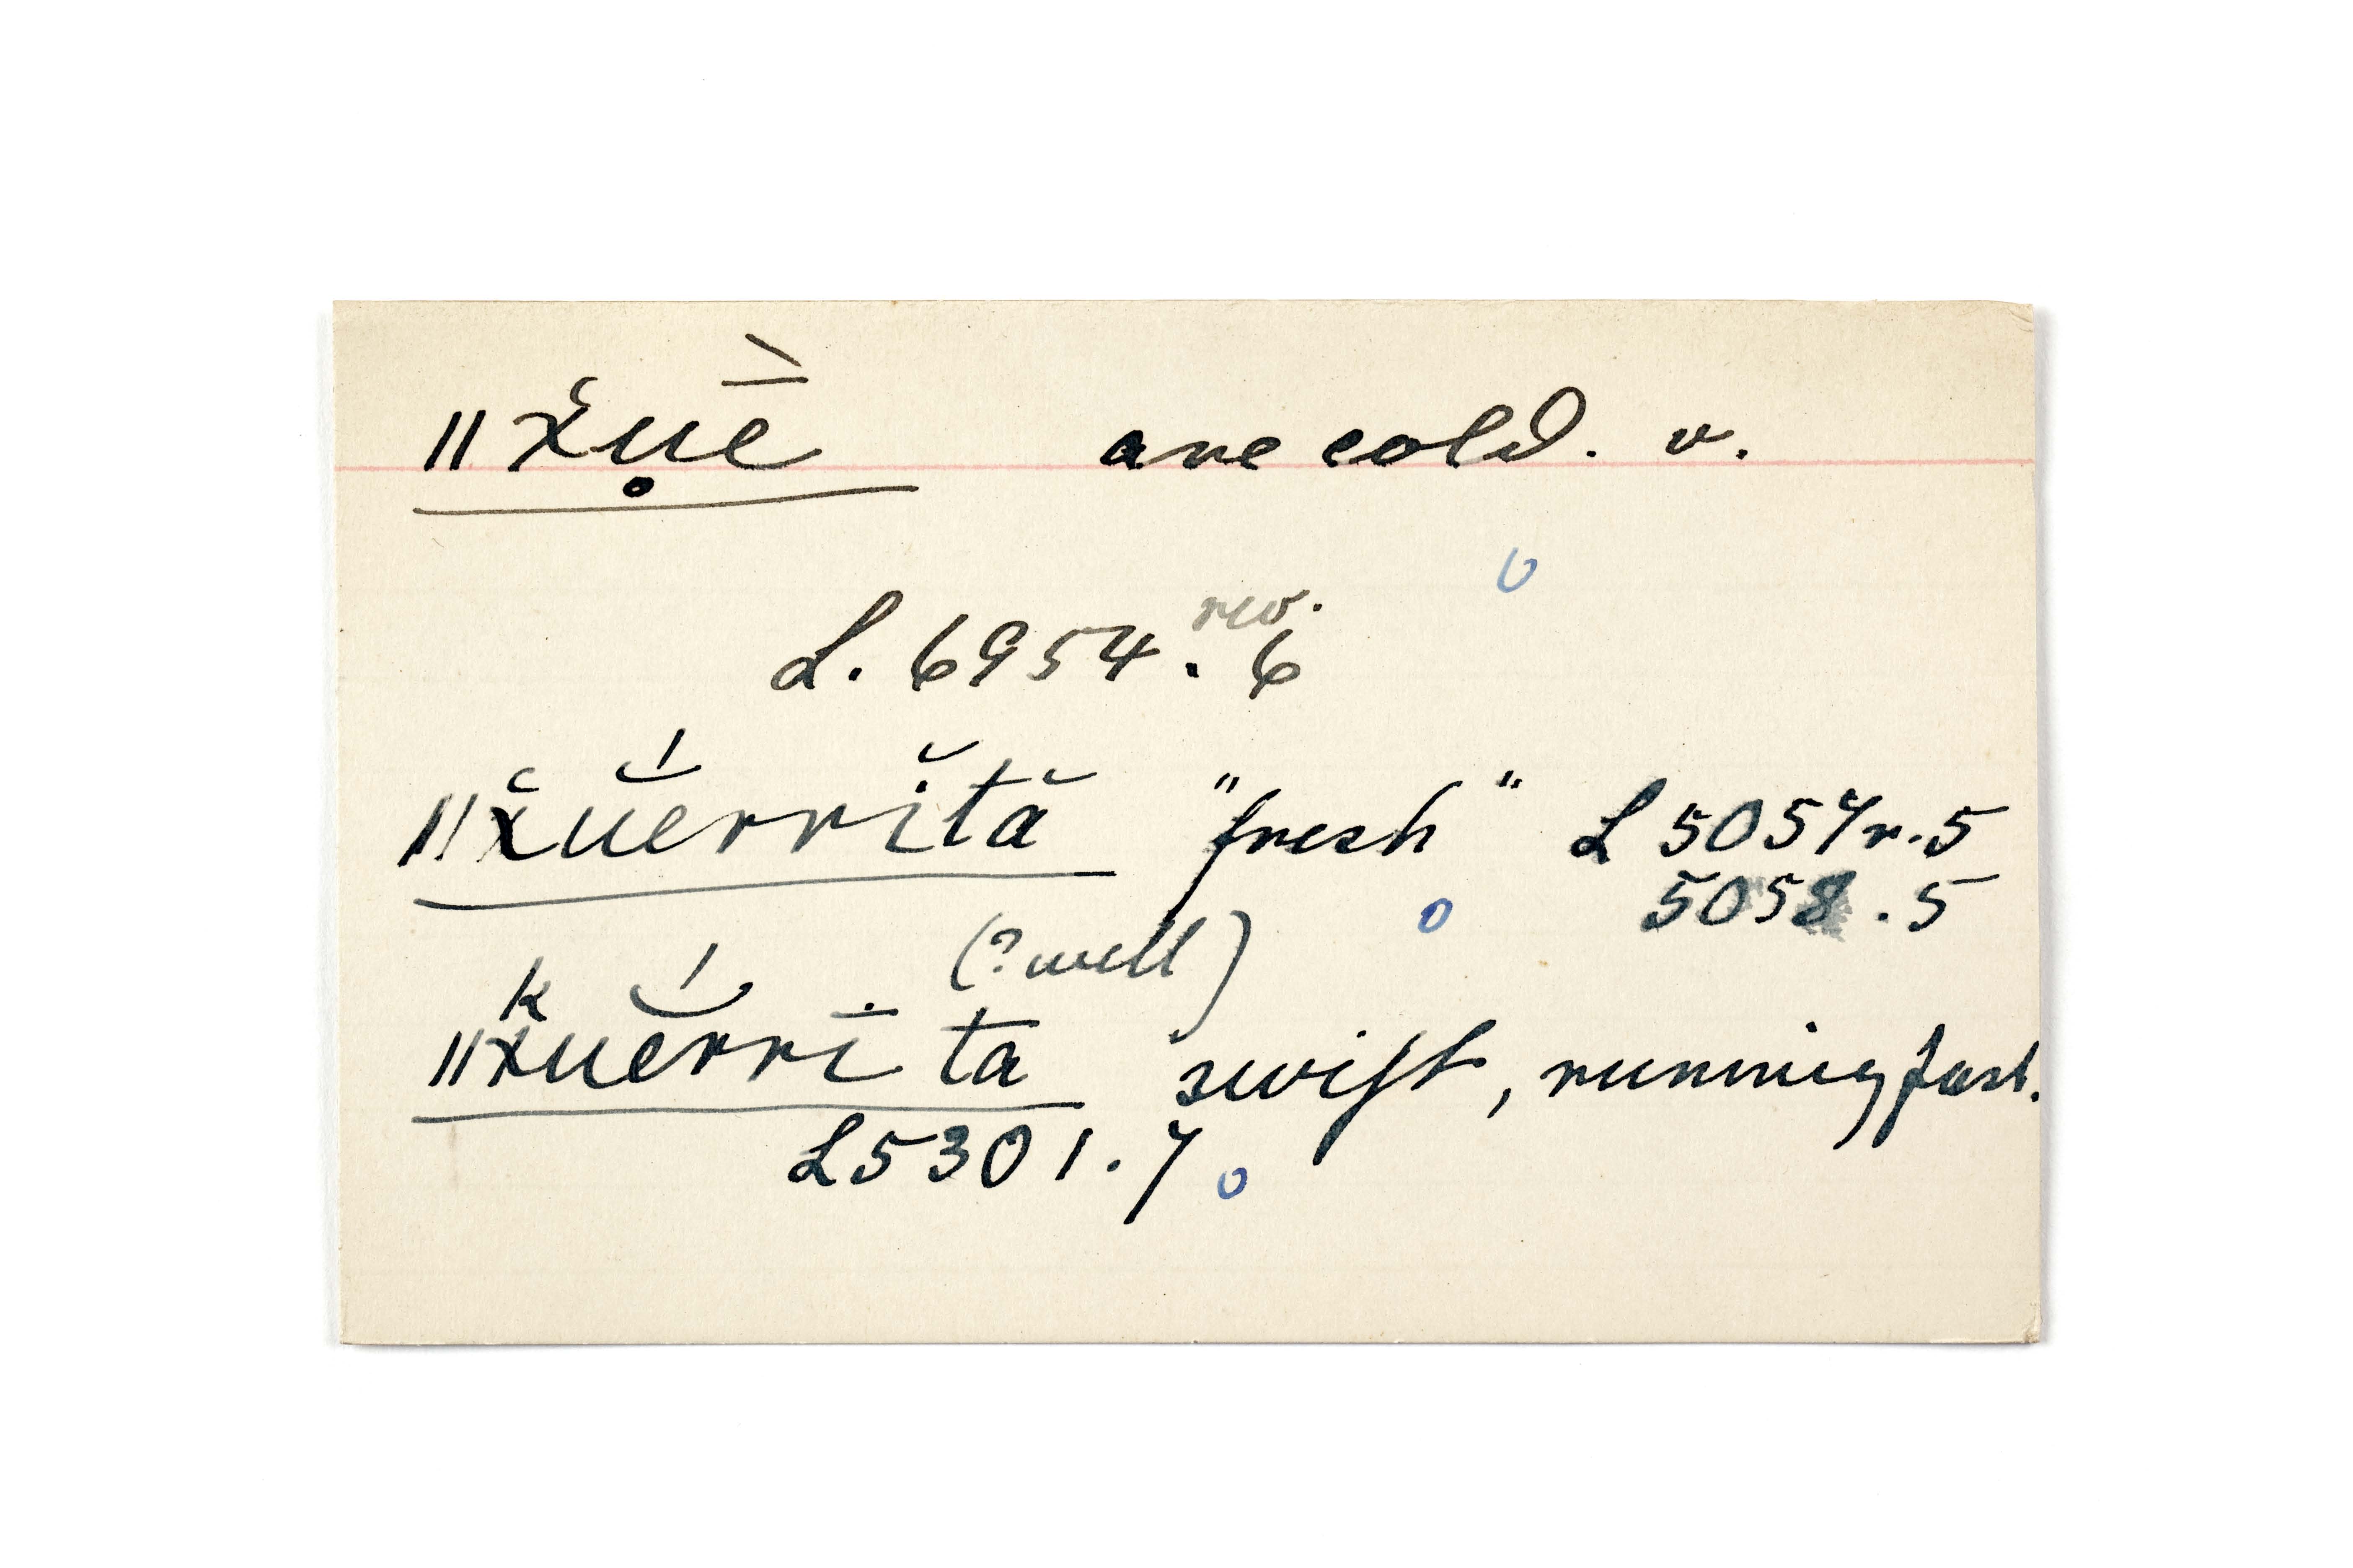 ǁx̆u̥ḕ̀ are cold. v.
L. 6954. rev. 6
ǁx̆uĕ́rrĭtă "fresh" L 5057r.5
(?well) 5058.5
ǁkxuĕ́rrī ta swift, running fast.
L5301.7